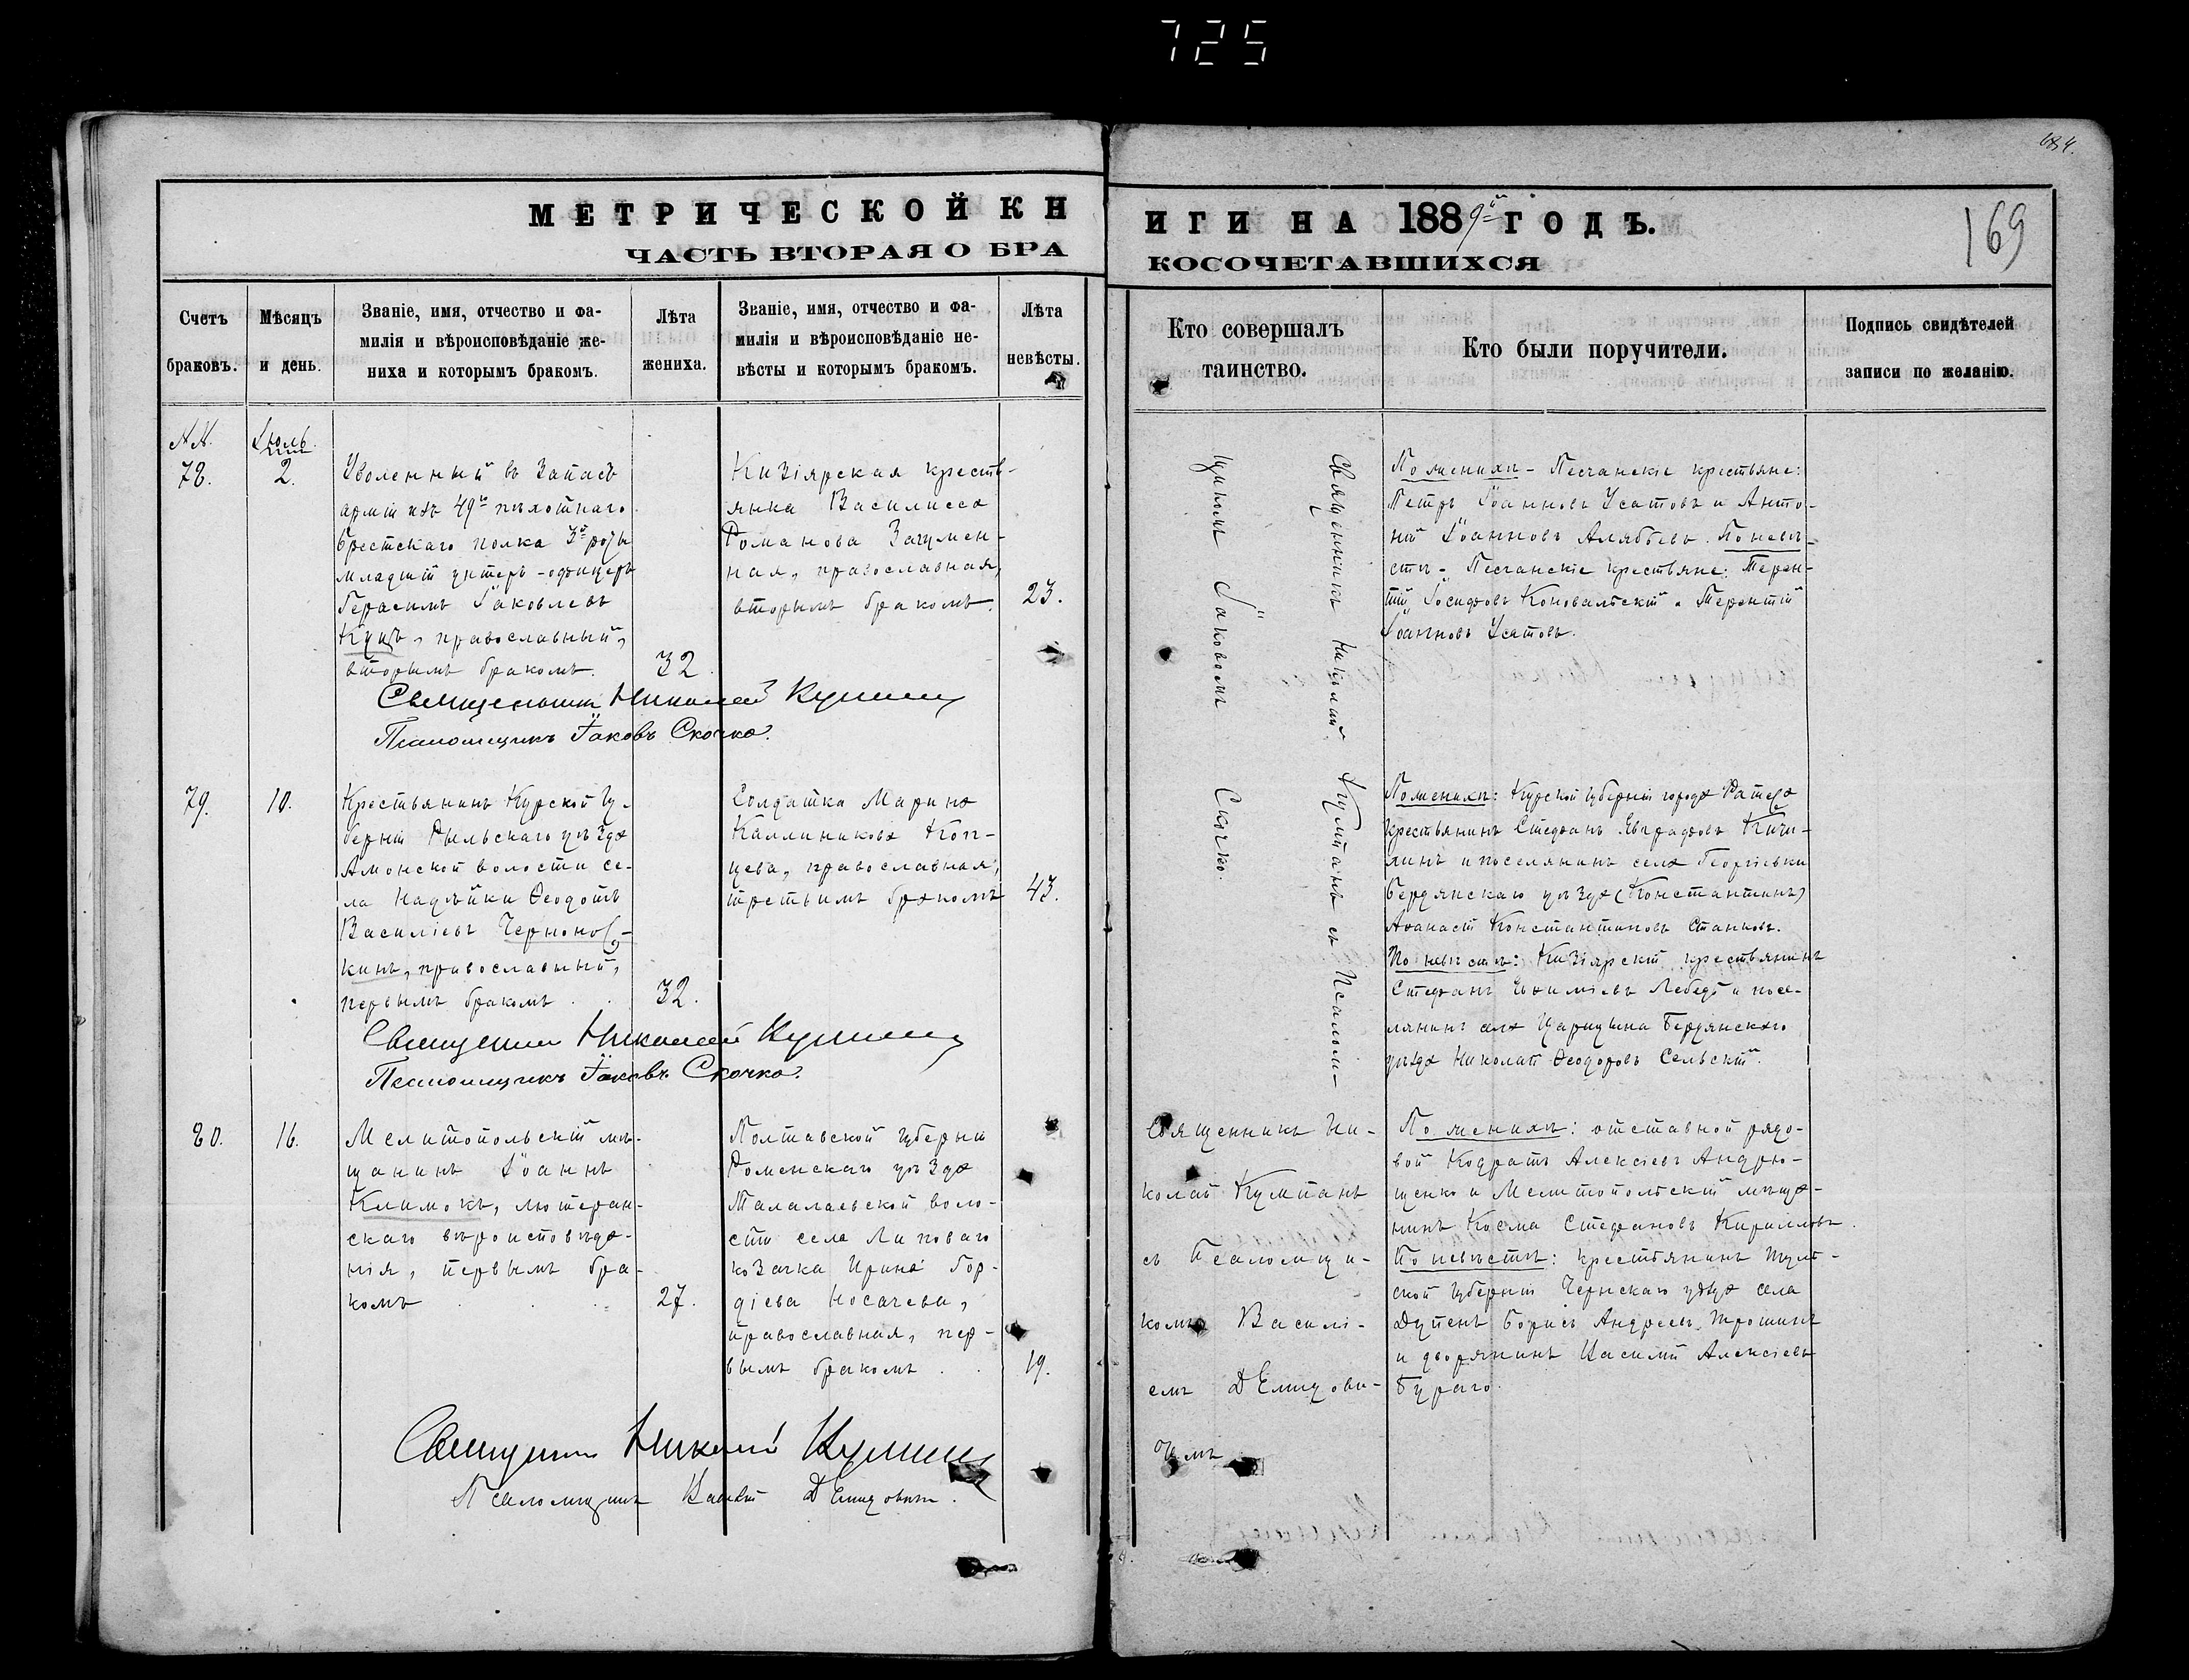 725
684.
МЕТРИЧЕСКОЙ КНИГИ НА 1889й ГОДЪ.
169
ЧАСТЬ ВТОРАЯ О БРАКОСОЧЕТАВШИХСЯ
Счетъ браковъ.
Мѣсяцъ и день.
Званіе, имя, отчество и фа-
милія и вѣроисповѣданіе же-
ниха и которымъ бракомъ.
Лѣта
жениха.
Званіе, имя, отчество и фа-
милія и вѣроисповѣданіе не-
вѣсты и которымъ бракомъ.
Лѣта
невѣсты.
Кто совершалъ
таинство.
Кто были поручители.
Подпись свидѣтелей
записи по желанію.
№№.
Іюль.
78.
2.
Уволенный въ запасъ
арміи изъ 49го пѣхотнаго
Брестскаго полка 3й роты
младшій унтеръ-офицеръ
Герасимъ Іаковлевъ
Куцъ, православный,
вторымъ бракомъ.
32.
Кизіярская кресть-
янка Василисса
Романова Загумен-
ная, православная,
вторымъ бракомъ.
23.
Священникъ Николай Купчанъ съ Псалом-
щикомъ Іаковомъ Скочко.
По женихѣ - Песчанскіе крестьяне:
Петръ Іоанновъ Усатовъ и Анто-
ній Іоанновъ Алябьевъ. По невѣ-
стѣ - Песчанскіе крестьяне: Терен-
тій Іосифовъ Коновальскій и Терентій
Іоанновъ Усатовъ.
Священникъ Николай
Псаломщикъ Іаковъ Скочко.
79.
10.
Крестьянинъ Курской гу-
берніи Рыльскаго уѣзда
Амонской волости се-
ла Надѣйки Ѳеодотъ
Василіевъ Черноно-
кинъ, православный,
первымъ бракомъ
32.
Солдатка Марина
Каллиникова Коп-
цева, православная,
третьимъ бракомъ
43.
По женихѣ: Курской губерніи города
крестьянинъ Стефанъ Евграфовъ Кичи-
линъ и поселянинъ села Георгіевки
Бердянскаго уѣзда (Константинъ)
Аѳанасій Константиновъ Станковъ.
По невѣстѣ: Кизіярскій крестьянинъ
Стефанъ Евѳиміевъ Лебедь и посе-
лянинъ села Царицына Бердянскаго
уѣзда Николай Ѳеодоровъ Сельскій.
Священникъ Николай
Псаломщикъ Іаковъ Скочко.
80.
16.
Мелитопольскій мѣ-
щанинъ Іоаннъ
Климокъ, лютеран-
скаго вѣроисповѣда-
нія, первымъ бра-
комъ
27.
Полтавской губерніи
Роменскаго уѣзда
Талалаевской воло-
сти села Липоваго
козачка Ирина Гор-
діева Носачева,
православная, пер-
вымъ бракомъ
19.
Священникъ Ни-
колай
съ Псаломщи-
комъ Василі-
емъ Демидови-
чемъ
По женихѣ: отставной рядо-
вой Кодратъ Алексіевъ Андрю-
щенко и Мелитопольскій мѣща-
нинъ Косма Стефановъ Кирилловъ.
По невѣстѣ: крестьянинъ Туль-
ской губерніи Чернскаго уѣзда села
Дупенъ Борисъ Андреевъ Трошинъ
и дворянинъ Василій Алексіевъ
Бураго.
Священникъ Николай
Псаломщикъ Василій Демидовичъ.